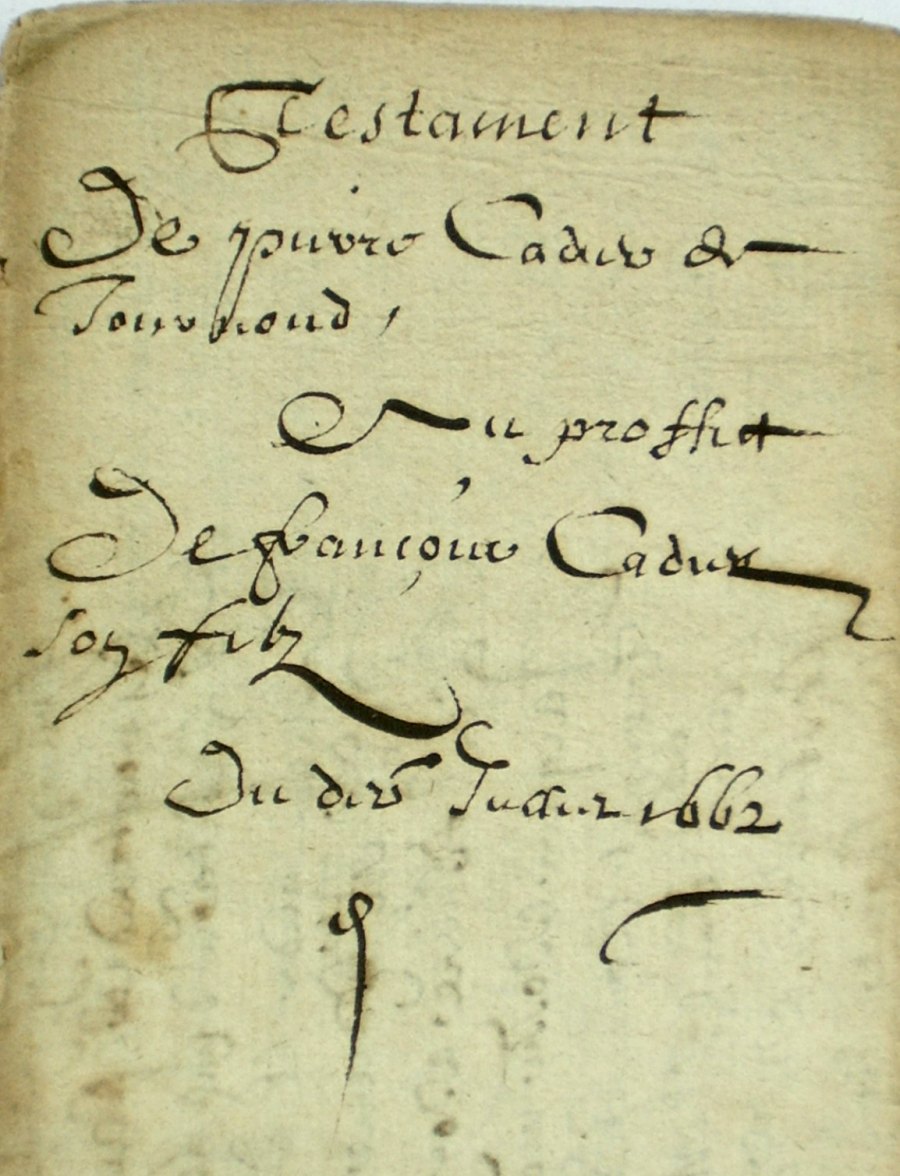 Testament
De pierre Cadier de
Tournoud,
Au proffict
De françois Cadier
son filz
Du der Juillet 1662